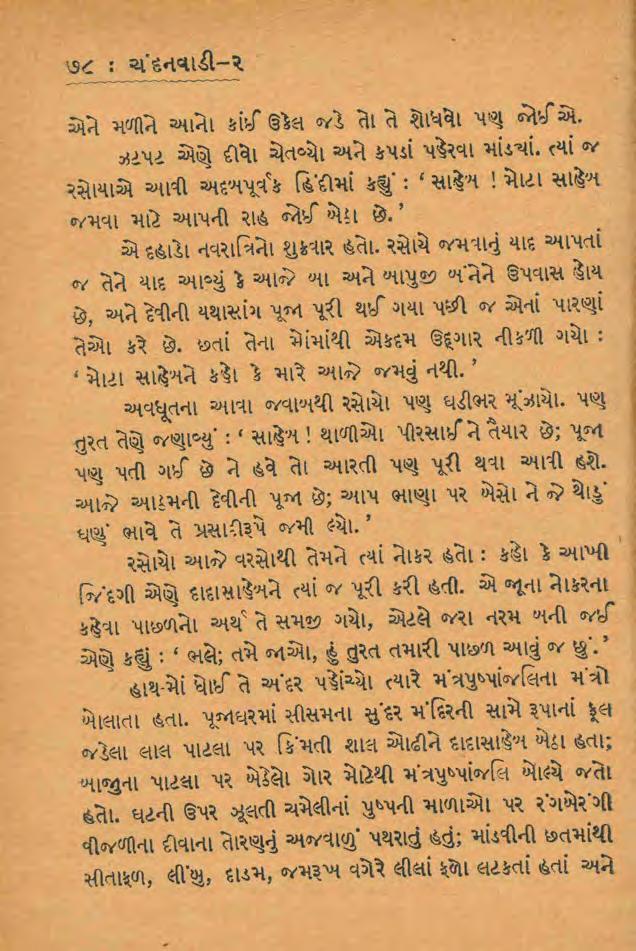 ૭૮ : ચંદનવાડી–૨
એને મળીને આનો કાંઈ ઉકેલ જડે તો તે શોધવો પણ જોઈ એ.
ઝટપટ એણે દીવો ચેતવ્યો અને કપડાં પહેરવા માંડ્યાં. ત્યાં જ
રસોયાએ આવી અદબપૂર્વક હિંદીમાં કહ્યું : ‘ સાહેબ ! મોટા સાહેબ
જમવા માટે આપની રાહ જોઈ બેઠા છે.’
એ દહાડો નવરાત્રિનો શુક્રવાર હતો. રસોયે જમવાનું યાદ આપતાં
જ તેને યાદ આવ્યું કે આજે બા અને બાપુજી બંનેને ઉપવાસ હોય
છે, અને દેવીની યથાસાંગ પૂજા પૂરી થઈ ગયા પછી જ એનાં પારણાં
તેઓ કરે છે. છતાં તેના મોંમાંથી એકદમ ઉદ્દગાર નીકળી ગયો :
‘ મોટા સાહેબને કહો કે મારે આજે જમવું નથી. ’
અવધૂતના આવા જવાબથી રસોયો પણ ઘડીભર મૂંઝાયો. પણ
તુરત તેણે જણાવ્યું : ‘ સાહેબ ! થાળીઓ પીરસાઈ ને તૈયાર છે; પૂજા
પણ પતી ગઈ છે ને હવે તો આરતી પણ પૂરી થવા આવી હશે.
આજે આઠમની દેવીની પૂજા છે; આપ ભાણા પર બેસો ને જે થોડું
ઘણું ભાવે તે પ્રસાદીરૂપે જમી લ્યો. ’
રસોયો આજે વરસોથી તેમને ત્યાં નોકર હતો : કહો કે આખી
જિંદગી એણે દાદાસાહેબને ત્યાં જ પૂરી કરી હતી. એ જૂના નોકરના
કહેવા પાછળનો અર્થ તે સમજી ગયો, એટલે જરા નરમ બની જઈ
એણે કહ્યું : ‘ ભલે; તમે જાઓ, હું તુરત તમારી પાછળ આવું જ છું.’
હાથ-મોં ધોઈ તે અંદર પહોંચ્યો ત્યારે મંત્રપુષ્પાંજલિના મંત્રો
બોલાતા હતા. પૂજાઘરમાં સીસમના સુંદર મંદિરની સામે રૂપાનાં ફૂલ
જડેલા લાલ પાટલા પર કિંમતી શાલ ઓઢીને દાદાસાહેબ બેઠા હતા;
બાજુના પાટલા પર બેઠેલો ગોર મોટેથી મંત્રપુષ્પાંજલિ બોલ્યે જતો
હતો. ઘટની ઉપર ઝૂલતી ચમેલીનાં પુષ્પની માળાઓ પર રંગબેરંગી
વીજળીના દીવાના તોરણનું અજવાળું પથરાતું હતું; માંડવીની છતમાંથી
સીતાફળ, લીંબુ, દાડમ, જમરૂખ વગેરે લીલાં ફળો લટકતાં હતાં અને